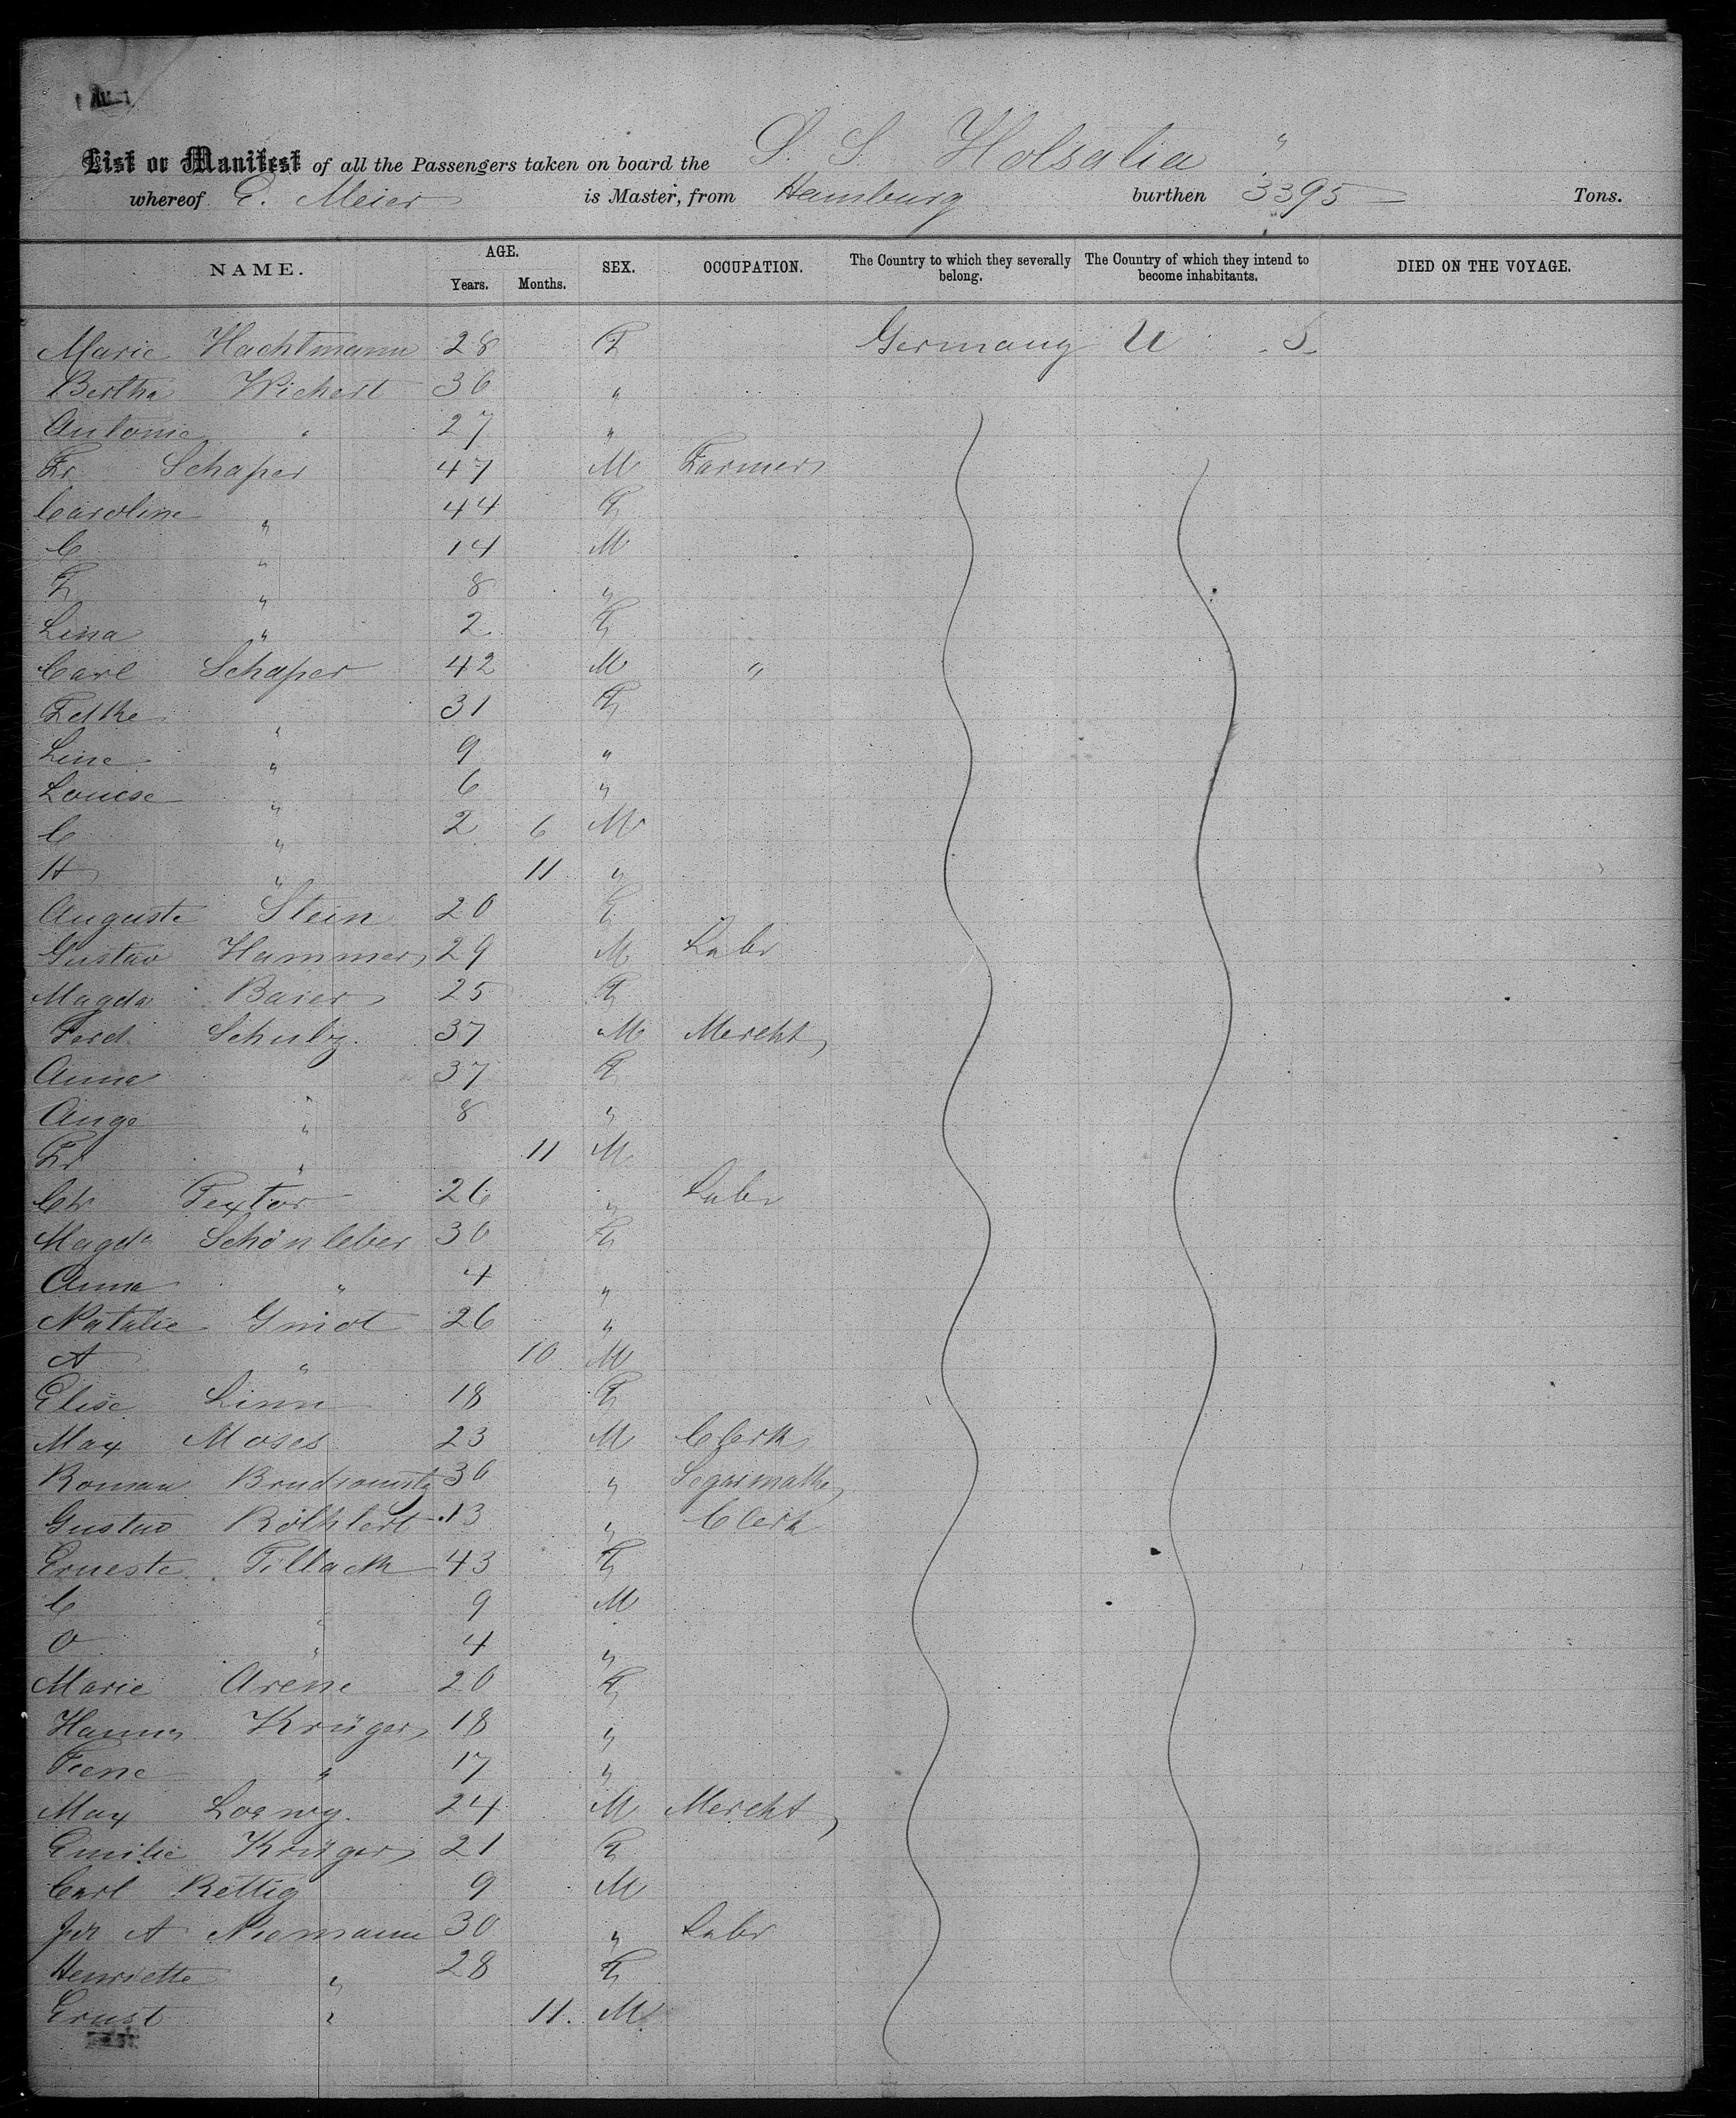 List or Manifest of all the Passengers taken on board the S. S. Holsatia "
whereof E. Meier is Master, from Hamburg burthen 3395 — Tons.
NAME. AGE. Years. Months. SEX. OCCUPATION. The Country to which they severally belong. The Country of which they intend to become inhabitants. DIED ON THE VOYAGE.
Marie Hachtmann 28 F Germany U S
Bertha Wichert 36 "
Antonie " 27 "
Fr Schaper 47 M Farmer
Caroline " 44 F
C " 14 M
F " 8 "
Lina " 2 F
Carl Schaper 42 M "
" 31 F
Line " 9 "
Louise " 6 "
C " 2 6 M
H " 11 "
Auguste Stein 20 F
Gustav Hammer 29 M Labr
Magda Baier 25 F
Ferd. Schulz. 37 M Mercht
Anna " 37 F
Auge " 8 "
Fr " 11 M
Chr Textor 26 " Labr
Magda Schönleber 30 F
Anna " 4 "
Natalie 26 "
A " 10 M
Elise Linn 18 F
Max Moses 23 M Clerk
Roman 30 " Segarmaker
Gustav 13 " Clerk
Erneste Tillack 43 F
C " 9 M
O " 4 "
Marie Arene 20 F
Hanna Krüger 18 "
" 17 "
Max Loewy. 24 M Mercht
Emilie Krüger 21 F
Carl Rettig 9 M
A Niemann 30 " Labr
Henriette " 28 F
Ernst " 11. M